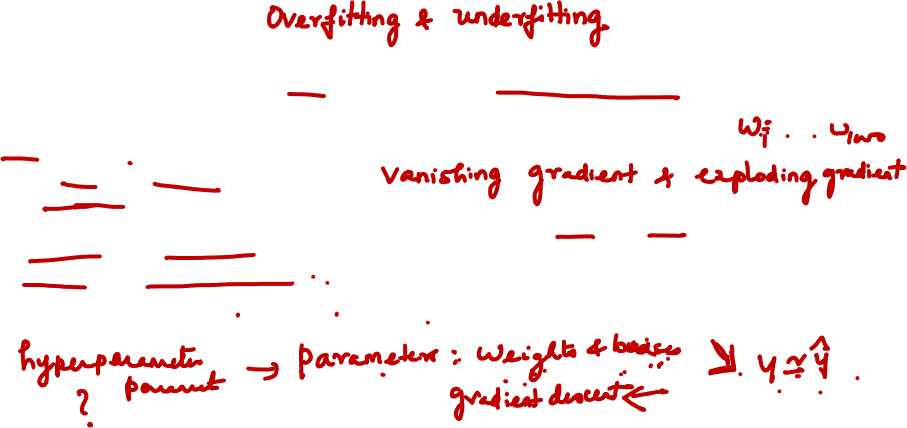 Overfitting & underfitting
W1 . . W100
Vanishing gradient & exploding gradient
hyperparameter → Parameters : Weights & biases ↘ y ≃ ŷ
?
gradient descent ←